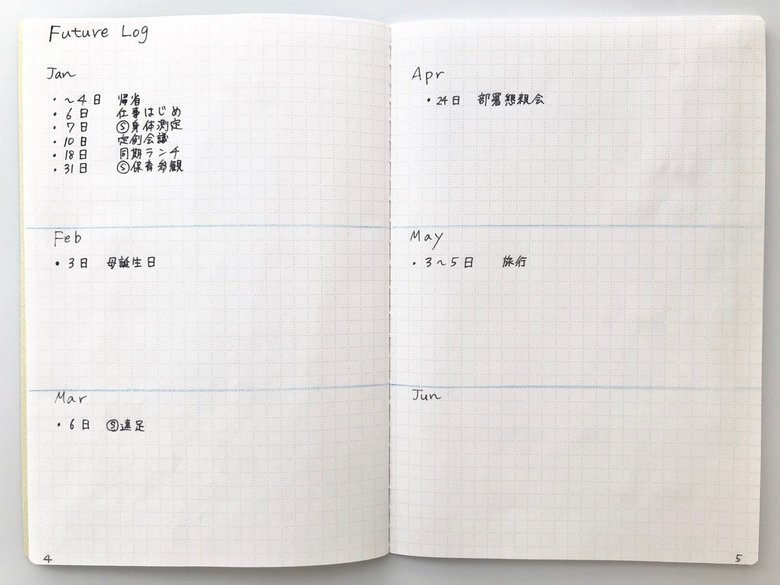 Future Log
Jan
・〜4日 帰省
・6日 仕事はじめ
・7日 Ⓢ身体測定
・10日 定例会議
・18日 同期ランチ
・31日 Ⓢ保育参観
Feb
・3日 母誕生日
Mar
・6日 Ⓢ遠足
4
Apr
・24日 部署懇親会
May
・3〜5日 旅行
Jun
5